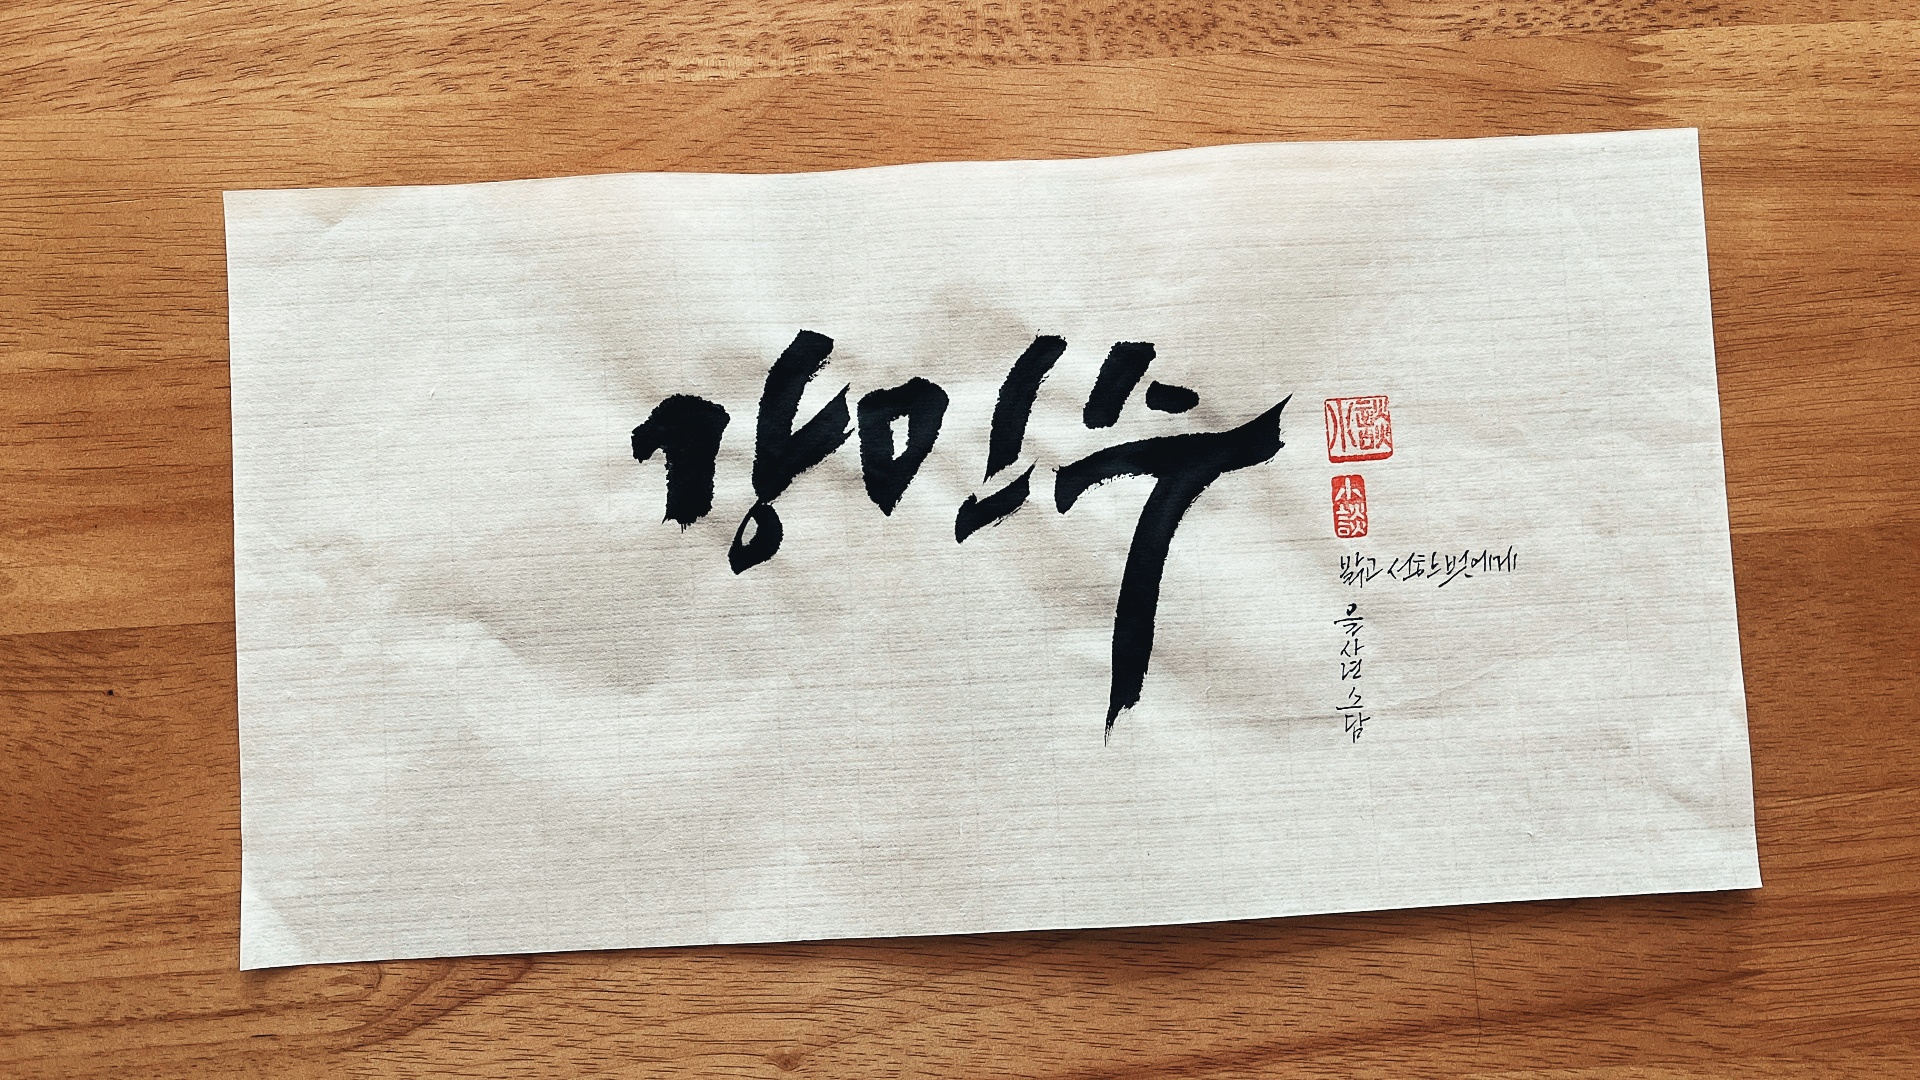 강민수
小談
小談
밝고 선한 벗에게
을사년 소담